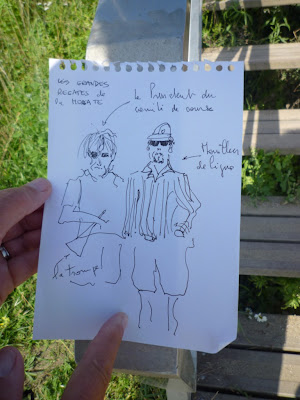 LES GRANDES
REGATES DE
la MOLATE
le Président du
comité de course
Mouilleur
de ligne
la trompe